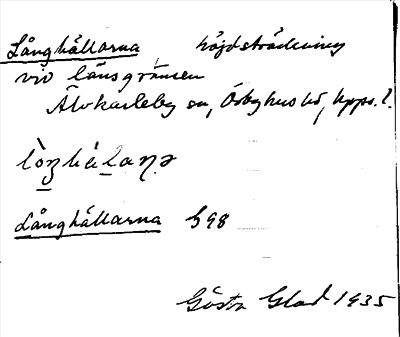 Långhällarna höjdsträckning
vid länsgränsen
Älvkarleby sn, Örbyhus hd, Upps. l.
Långhällarna G 98
Gösta Glad 1935